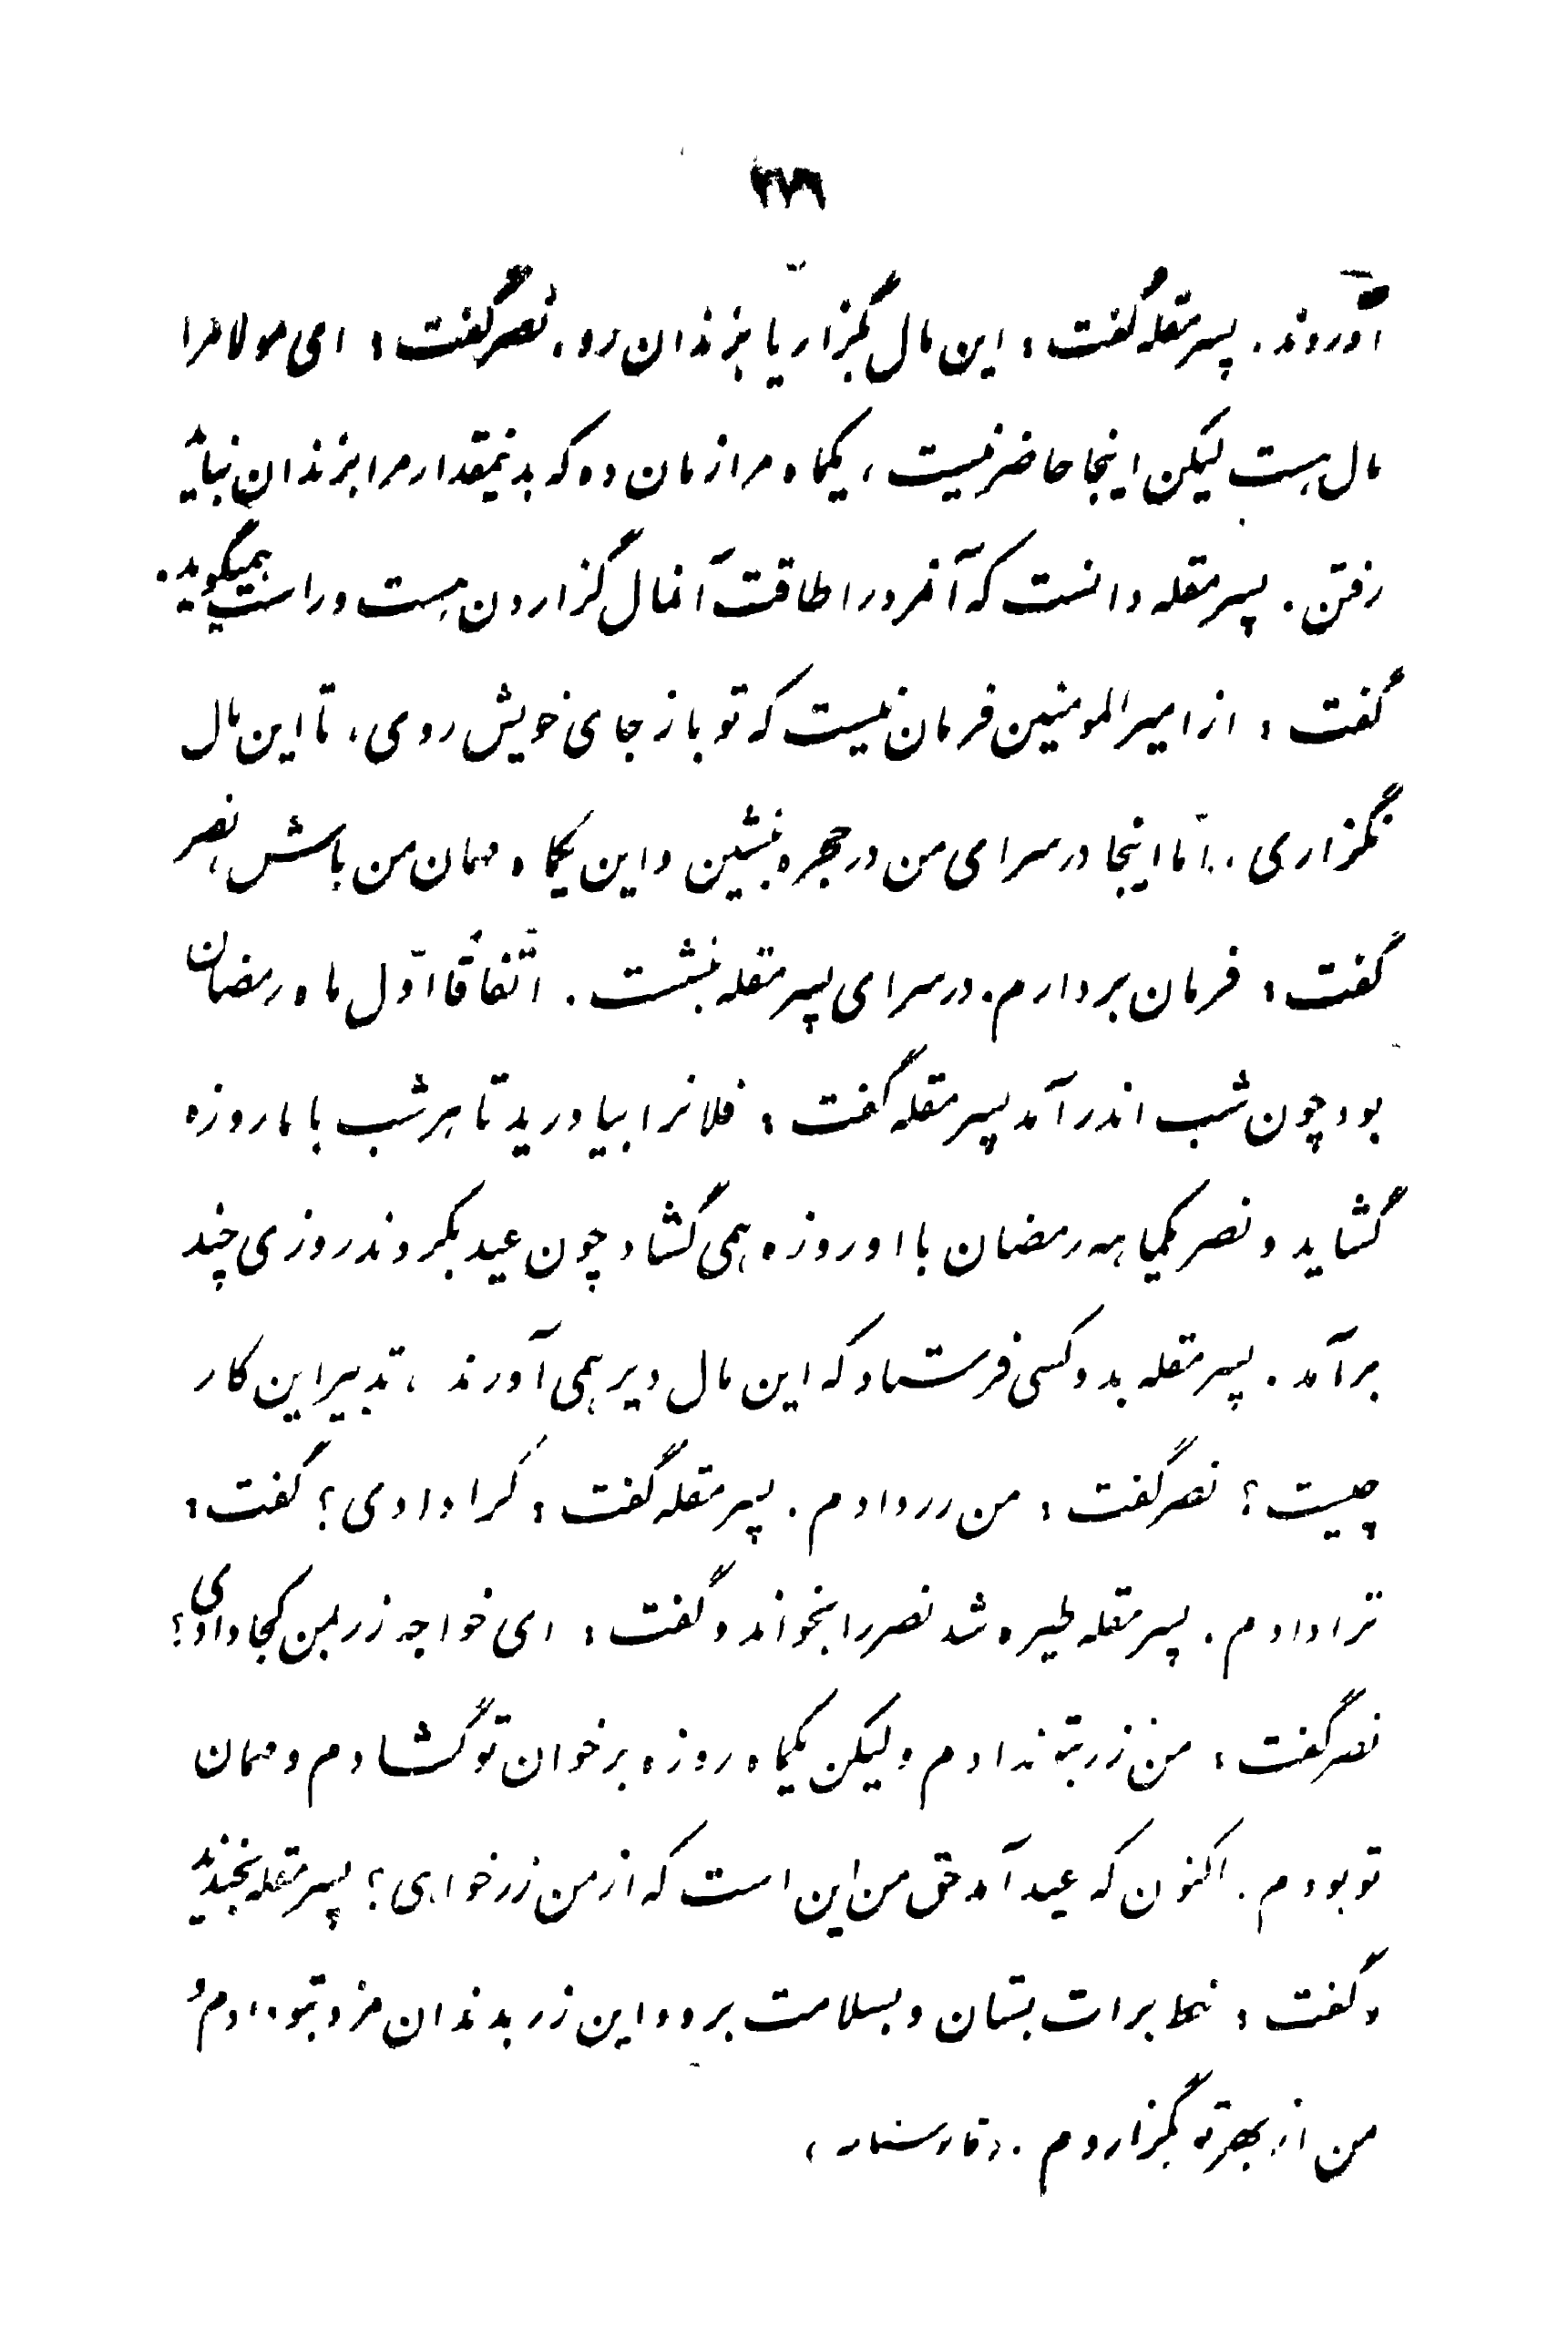 ۲۷۶
آوردند. پسر مقله گفت: این مال بگزار یا بزندان رو، نصر گفت: ای مولا مرا
مال هست لیکن اینجا حاضر نیست، یکماه مرا زمان ده که بدینمقدار مرا بزندان نباید
رفتن. پسر مقله دانست که آنمرد را طاقت آنمال گزاردن هست و راست همیگوید.
گفت: از امیرالمومنین فرمان نیست که تو باز جای خویش روی، تا این مال
نگزاری. امّا اینجا در سرای من در حجره بنشین و این یکماه مهمان من باش، نصر
گفت: فرمان بردارم. در سرای پسر مقله بنشست. اتّفاقاً اوّل ماه رمضان
بود چون شب اندر آمد پسر مقله گفت: فلانرا بیاورید تا هر شب با ما روزه
گشاید و نصر یکماهه رمضان با او روزه همی گشاد چون عید بکردند روزی چند
برآمد. پسر مقله بدو کسی فرستاد که این مال دیر همی آورند، تدبیر این کار
چیست؟ نصر گفت: من زر دادم. پسر مقله گفت: کرا دادی؟ گفت:
ترا دادم. پسر مقله طیره شد نصر را بخواند و گفت: ای خواجه زر بمن کجا دادی؟
نصر گفت: من زر بتو ندادم ولیکن یکماه روزه بر خوان تو گشادم و مهمان
تو بودم. اکنون که عید آمد حق من این است که از من زر خواهی؟ پسر مقله بخندید
و گفت: خط برات بستان و بسلامت برو و این زر بدندان مزد بتو دادم و
من از بهر تو بگزاردم. (قابوسنامه)